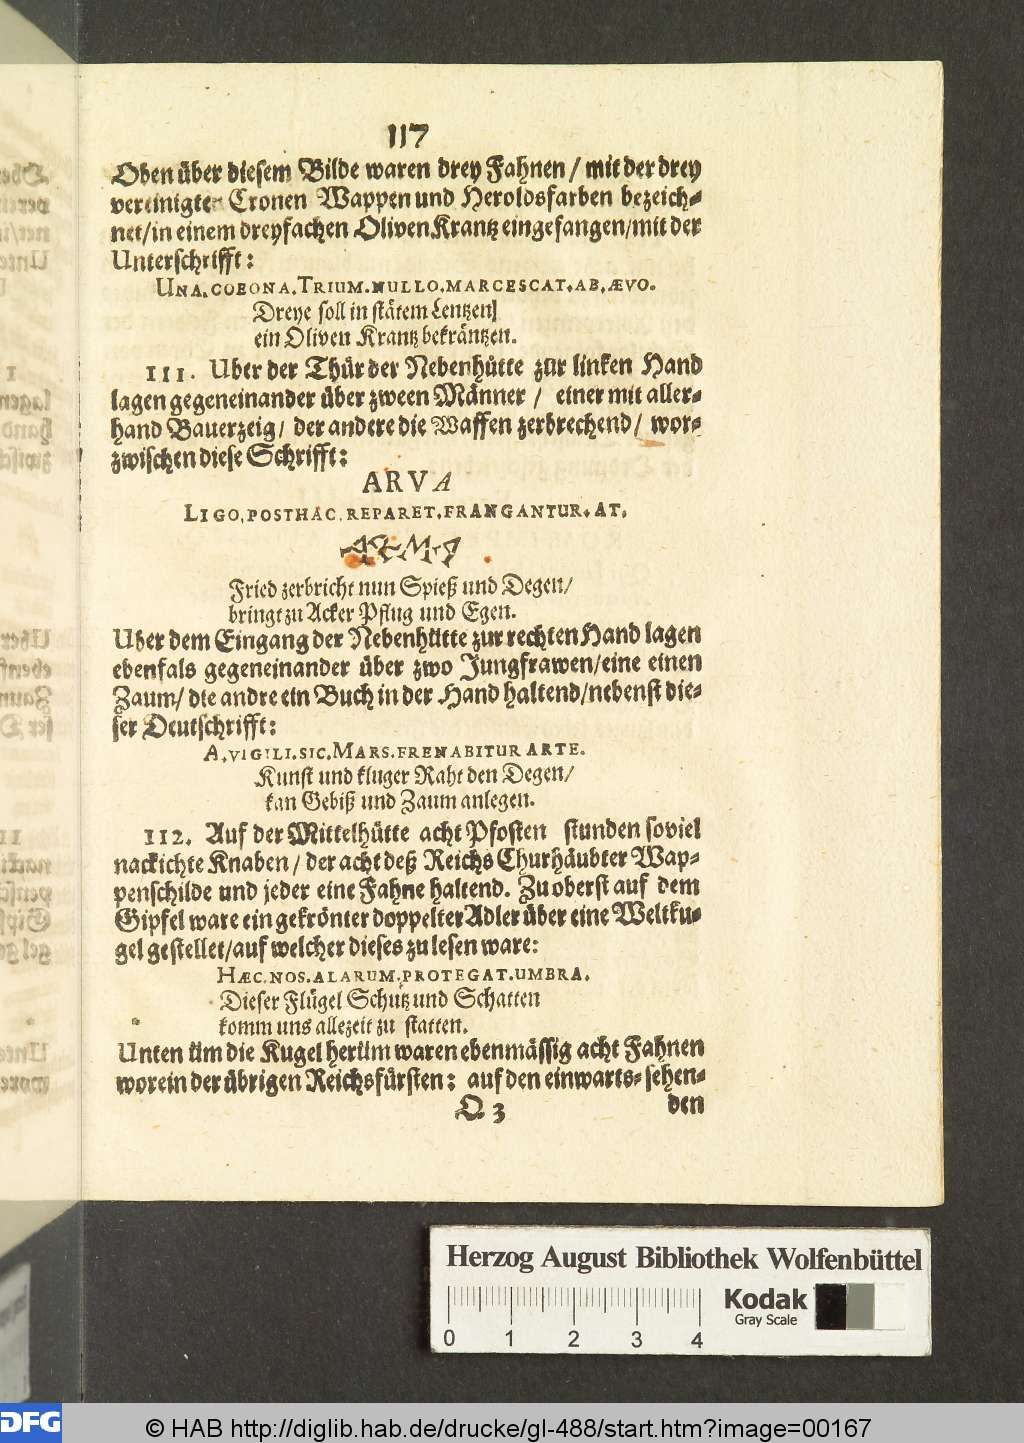 117
Oben über diesem Bilde waren drey Fahnen / mit der drey
vereinigte Cronen Wappen und Heroldsfarben bezeich-
net/in einem dreyfachen OlivenKrantz eingefangen/mit der
Unterschrifft:
UNA.COBONA.TRIUM.NULLO.MARCESCAT.AB.ÆVO.
Dreye soll in stätem Lentzen]
ein Oliven Krantz bekräntzen.
111. Uber der Thür der Nebenhütte zur linken Hand
lagen gegeneinander über zween Männer / einer mit aller-
hand Bauerzeig/ der andere die Waffen zerbrechend/ wor-
zwischen diese Schrifft:
ARVA
LIGO.POSTHAC.REPARET.FRANGANTUR.AT.
Fried zerbricht nun Spieß und Degen/
bringt zu Acker Pflug und Egen.
Uber dem Eingang der Nebenhütte zur rechten Hand lagen
ebenfals gegeneinander über zwo Jungfrawen/eine einen
Zaum/ die andre ein Buch in der Hand haltend/nebenst die-
ser Deutschrifft:
A.VIGILI.SIC.MARS.FRENABITUR ARTE.
Kunst und kluger Raht den Degen/
kan Gebiß und Zaum anlegen.
112. Auf der Mittelhütte acht Pfosten stunden soviel
nackichte Knaben / der acht deß Reichs Churhäubter Wap-
penschilde und jeder eine Fahne haltend. Zu oberst auf dem
Gipfel ware ein gekrönter doppelter Adler über eine Weltku-
gel gestellet/auf welcher dieses zu lesen ware:
HÆC.NOS.ALARUM.PROTEGAT.UMBRA.
Dieser Flügel Schutz und Schatten
komm uns allezeit zu statten.
Unten üm die Kugel herüm waren ebenmässig acht Fahnen
worein der übrigen Reichsfürsten: auf den einwarts-sehen-
O 3 den
Herzog August Bibliothek Wolfenbüttel
Kodak
Gray Scale
0 1 2 3 4
DFG
© HAB http://diglib.hab.de/drucke/gl-488/start.htm?image=00167